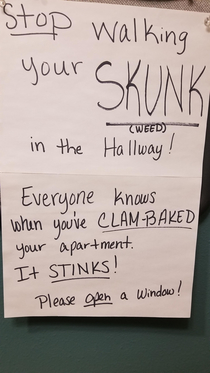 STOP walking
your SKUNK
(WEED)
in the Hallway!
Everyone knows
when you've CLAM-BAKED
your apartment.
It STINKS!
Please open a window!